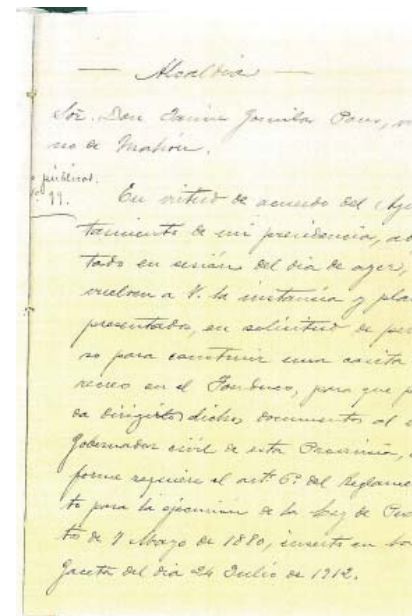 — Alcaldia —
Sor. Don Jaime
no de Mahón.
públicos.
99.
En virtud de acuerdo del Ayun
tamiento de mi presidencia, adop
tado en sesión del dia de ayer,
vuelven a V. la instancia y plan
presentados, en solicitud de permi
so para construir una casita
recreo en el Fonduco, para que pue
da dirigir dichos documentos al
Gobernador civil de esta Provincia,
forme requiere el artº 6º del Reglamen
to para la ejecución de la Ley de Puer
tos de 7 Mayo de 1880, inserto en la
Gaceta del dia 24 Julio de 1912.